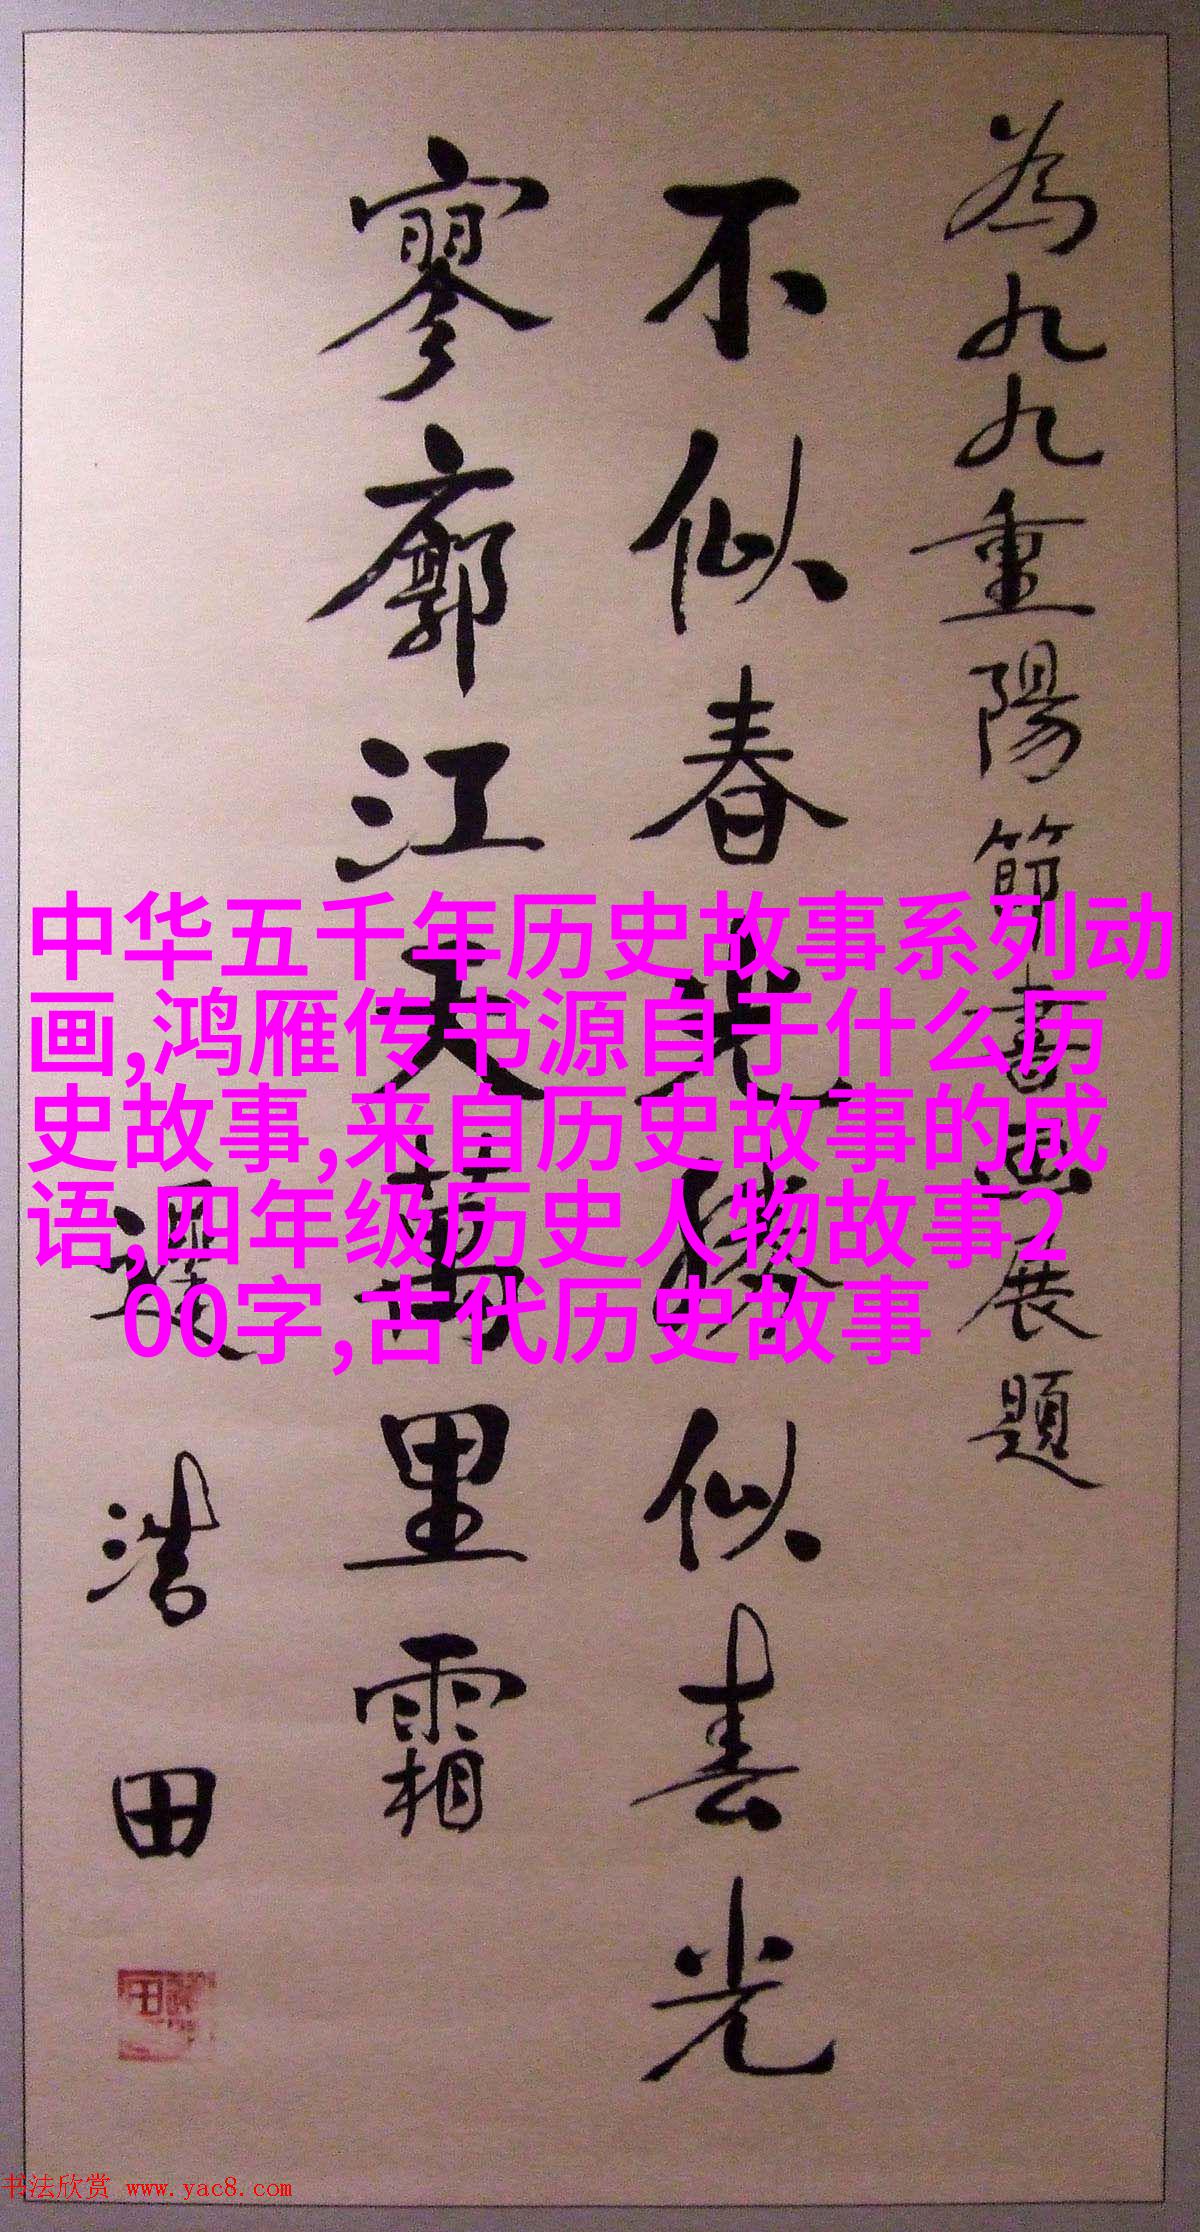 為九九重陽節書畫展題
不似春光勝似春光
寥廓江天萬里霜
遲浩田
中华五千年历史故事系列动
画,鸿雁传书源自于什么历
史故事,来自历史故事的成
语,四年级历史人物故事2
00字,古代历史故事
书法欣赏 www.yac8.com